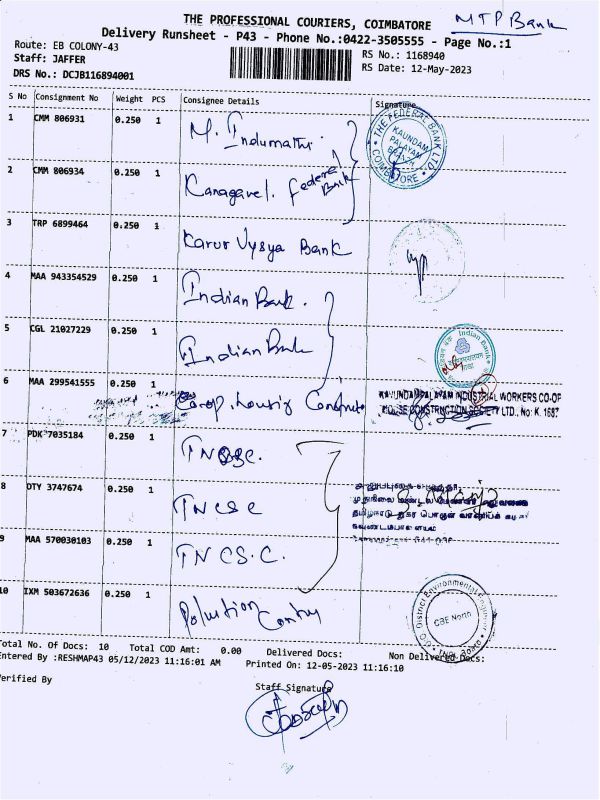 THE PROFESSIONAL COURIERS, COIMBATORE
MTP Bank
Delivery Runsheet - P43 - Phone No.:0422-3505555 - Page No.:1
Route: EB COLONY-43
RS No.: 1168940
Staff: JAFFER
RS Date: 12-May-2023
DRS No.: DCJB116894001
S No Consignment No Weight PCS Consignee Details Signature
1 CMM 806931 0.250 1 M. Indumathi
THE FEDERAL BANK LTD.
KAUNDAM
PALAYAM
BRANCH
COIMBATORE
2 CMM 806934 0.250 1 Kanagavel. Federal
Bank
3 TRP 6899464 0.250 1 Karur Vysya Bank
4 MAA 943354529 0.250 1 Indian Bank.
5 CGL 21027229 0.250 1 Indian Bank
Indian Bank
6 MAA 299541555 0.250 1
KAVUNDAMPALAYAM INDUSTRIAL WORKERS CO-OP
HOUSE CONSTRUCTION SOCIETY LTD., No: K. 1687
7 PDK 7035184 0.250 1
8 DTY 3747674 0.250 1 TNCSC
9 MAA 570030103 0.250 1 TNCS.C.
10 IXM 503672636 0.250 1 Pollution
District Environmental Engineer
CBE North
Total No. Of Docs: 10 Total COD Amt: 0.00 Delivered Docs: Non Delivered Docs:
Entered By :RESHMAP43 05/12/2023 11:16:01 AM Printed On: 12-05-2023 11:16:10
Verified By
Staff Signature